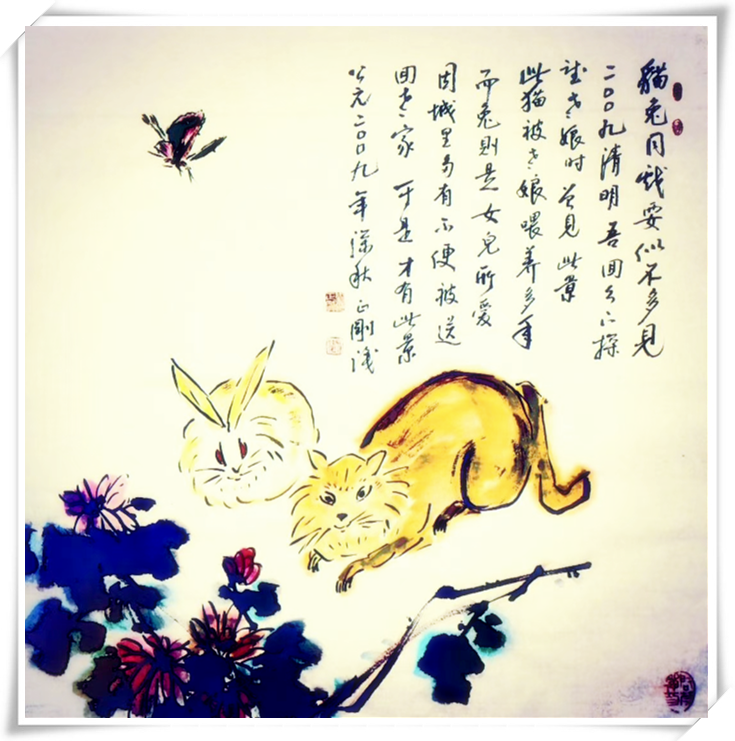 貓兔同戏耍似不多見
二〇〇九清明吾回探
望老娘时曾見此景
此猫被老娘喂养多年
而兔則是女兒所爱
因城里多有不便被送
回老家于是才有此景
公元二〇〇九年深秋正剛識